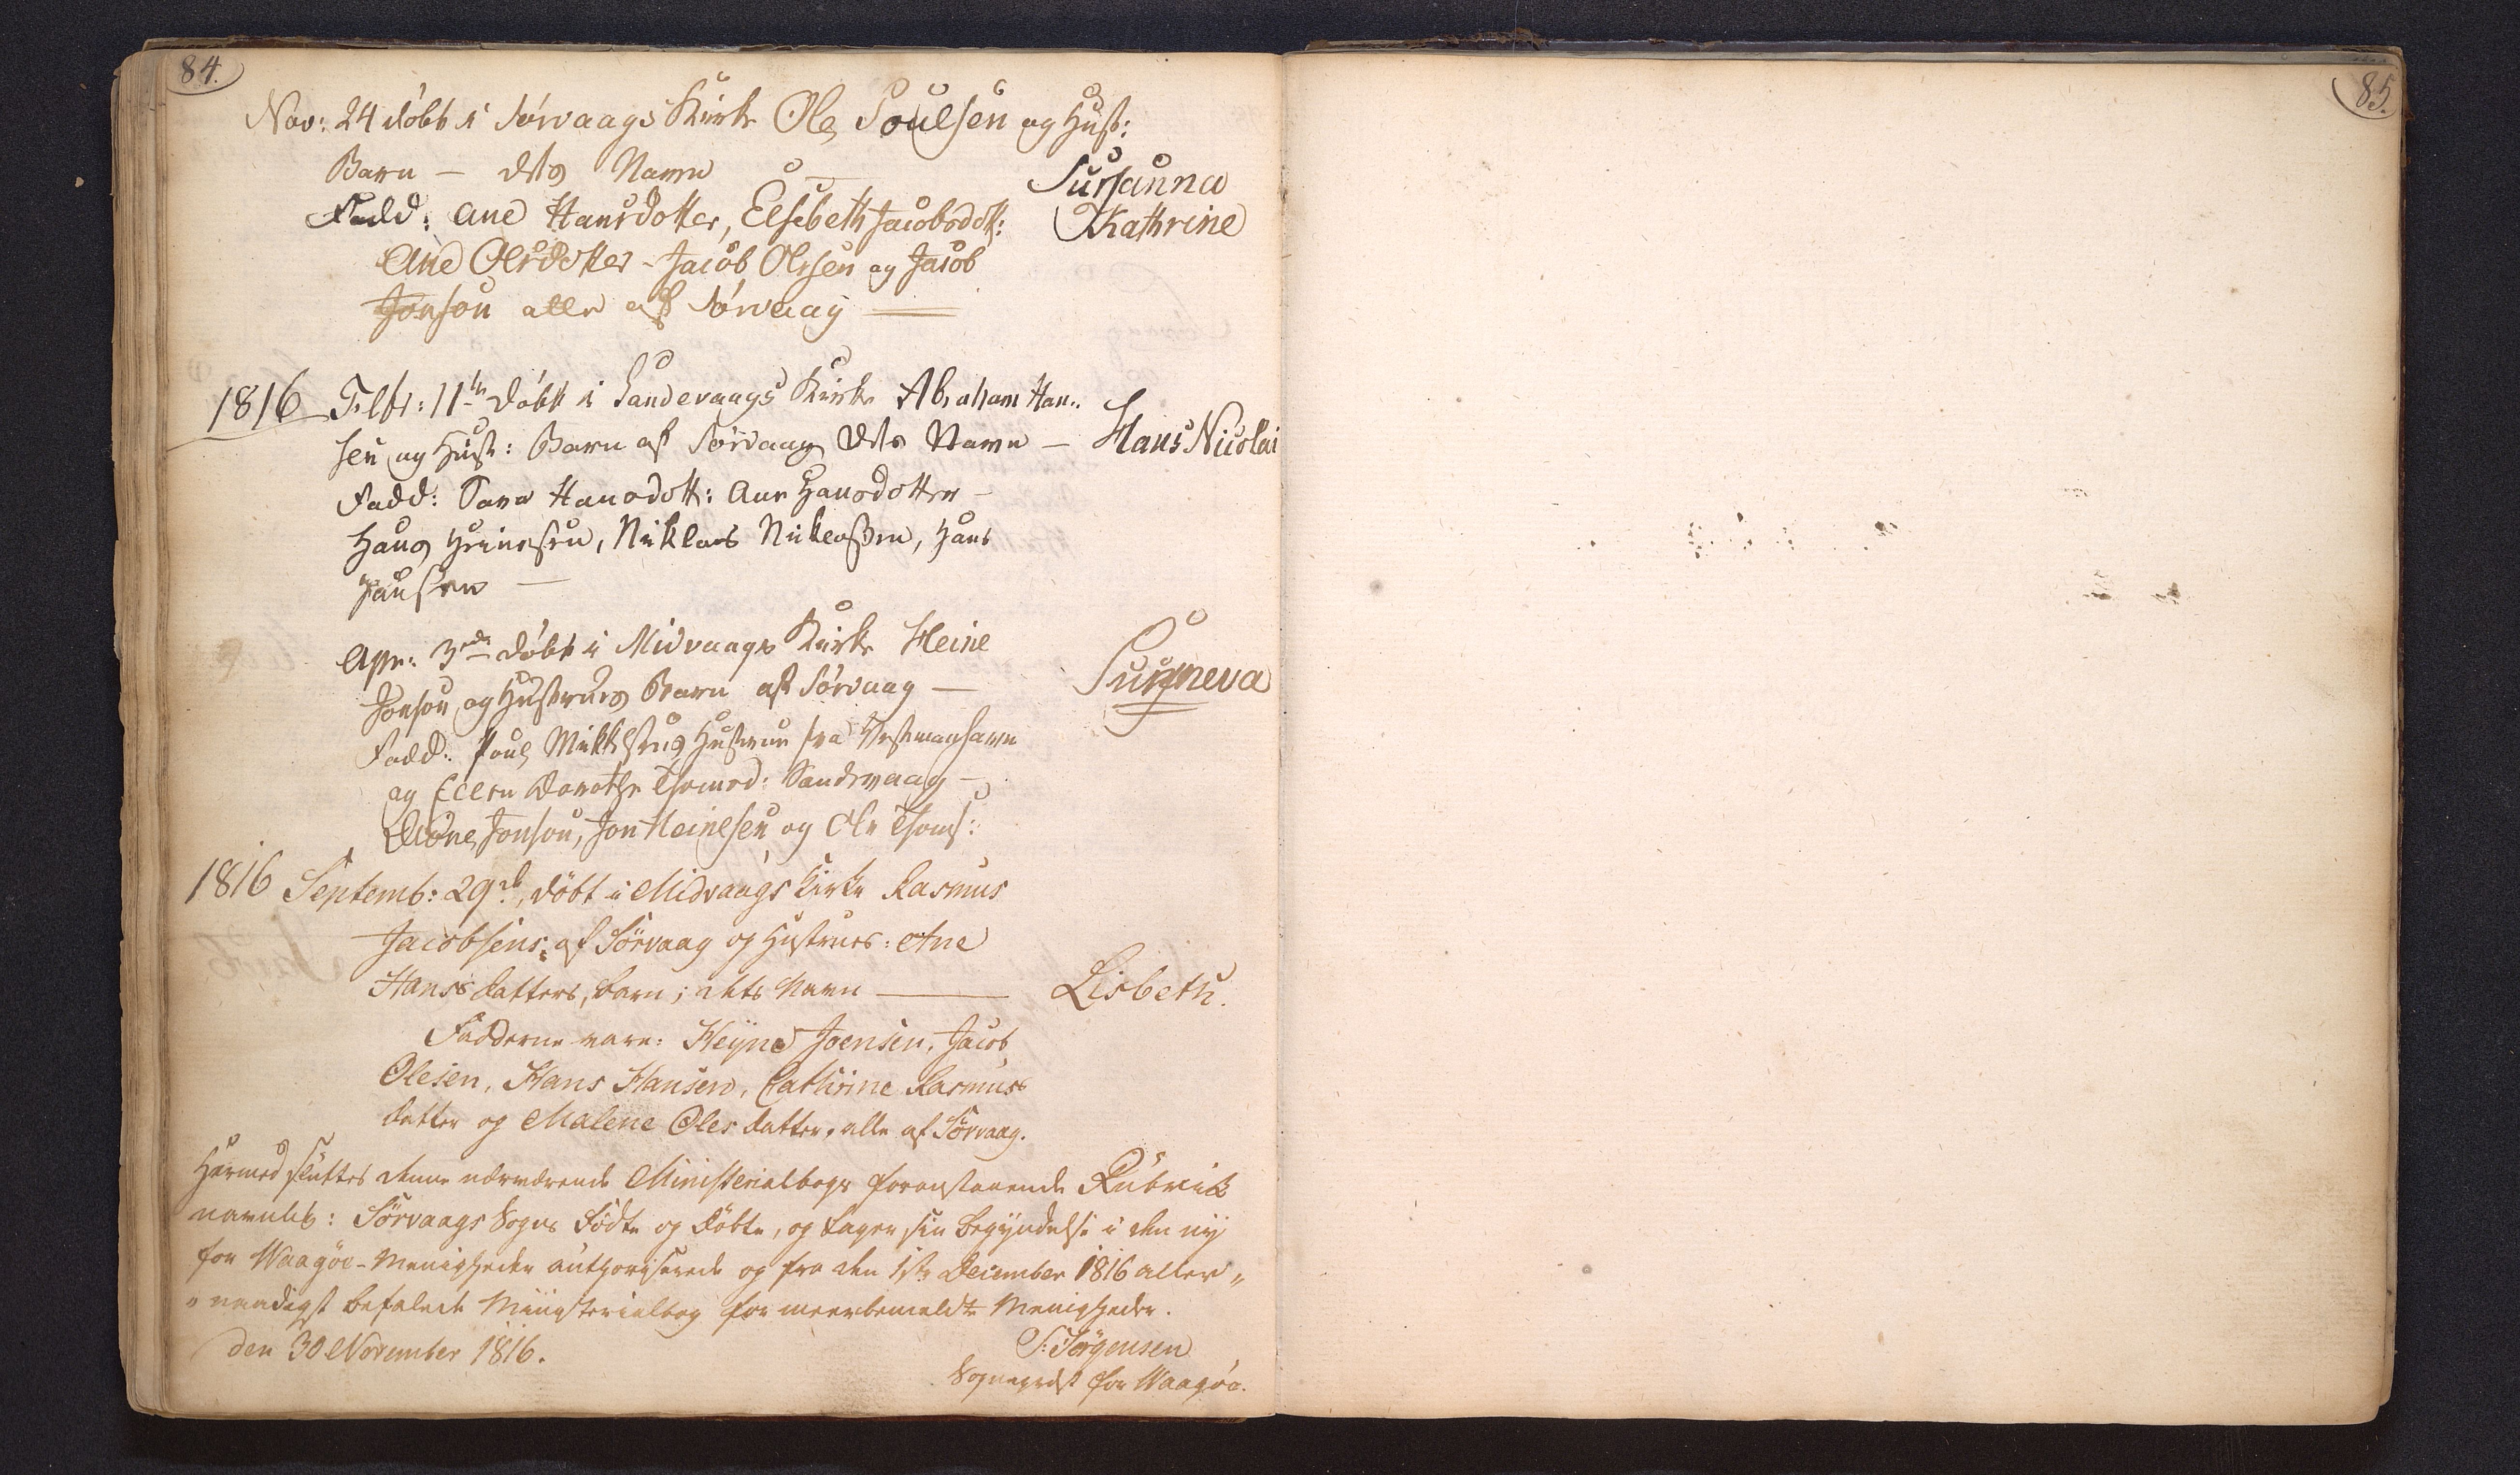 84.
85.
Nov: 24 döbt i Sörvaags Kirke Ole Poulsen og Hust:
Barn — dets Navn — Susanna
Fadd: Ane Hansdotter, Elsebeth Jacobsdott: Kathrine
Ane Olesdotter - Jacob Olesen og Jacob
Jonson alle af Sörvaag —
1816 Febr: 11te döbt i Sandevaags Kirke Abraham Han-
sen og Hust: Barn af Sörvaag Dets Navn — Hans Nicolai
Fadd: Sara Hansdott: Ane Hansdotter —
Hans Heinesen, Niklas Niklassen, Hans
Hansen —
Apr: 3de döbt i Midvaags Kirke Heine
Jonson og Hustrues Barn af Sörvaag — Sunneva
Fadd: Poul Mikkelsens Hustrue fra Vestmanhavn
og Ellen Dorothe Thomsd: Sandevaag —
Jonson, Jon Heinesen og Ole Thoms:
1816 Septemb: 29d, döbt i Midvaags Kirke Rasmus
Jacobsens af Sörvaag og Hustrues: Ane
Hansdatters, barn; dets Navn — Lisbeth.
Fadderne vare: Heÿne Joensen, Jacob
Olesen, Hans Hansen, Cathrine Rasmus
datter og Malene Oles datter, alle af Sörvaag.
Hermed sluttes denne nærværende Ministerialbogs foranstaaende Rubrik
navnlig: Sörvaags Sogns Födte og Döbte, og tager sin Begyndelse i den nÿ
for Waagöe-Menigheder authoriserede og fra den 1ste December 1816 aller„
„naadigst befalede Ministerialbog for meerbemeldte Menigheder.
den 30 November 1816.
S: Sörgensen
Sognepræst for Waagöe.